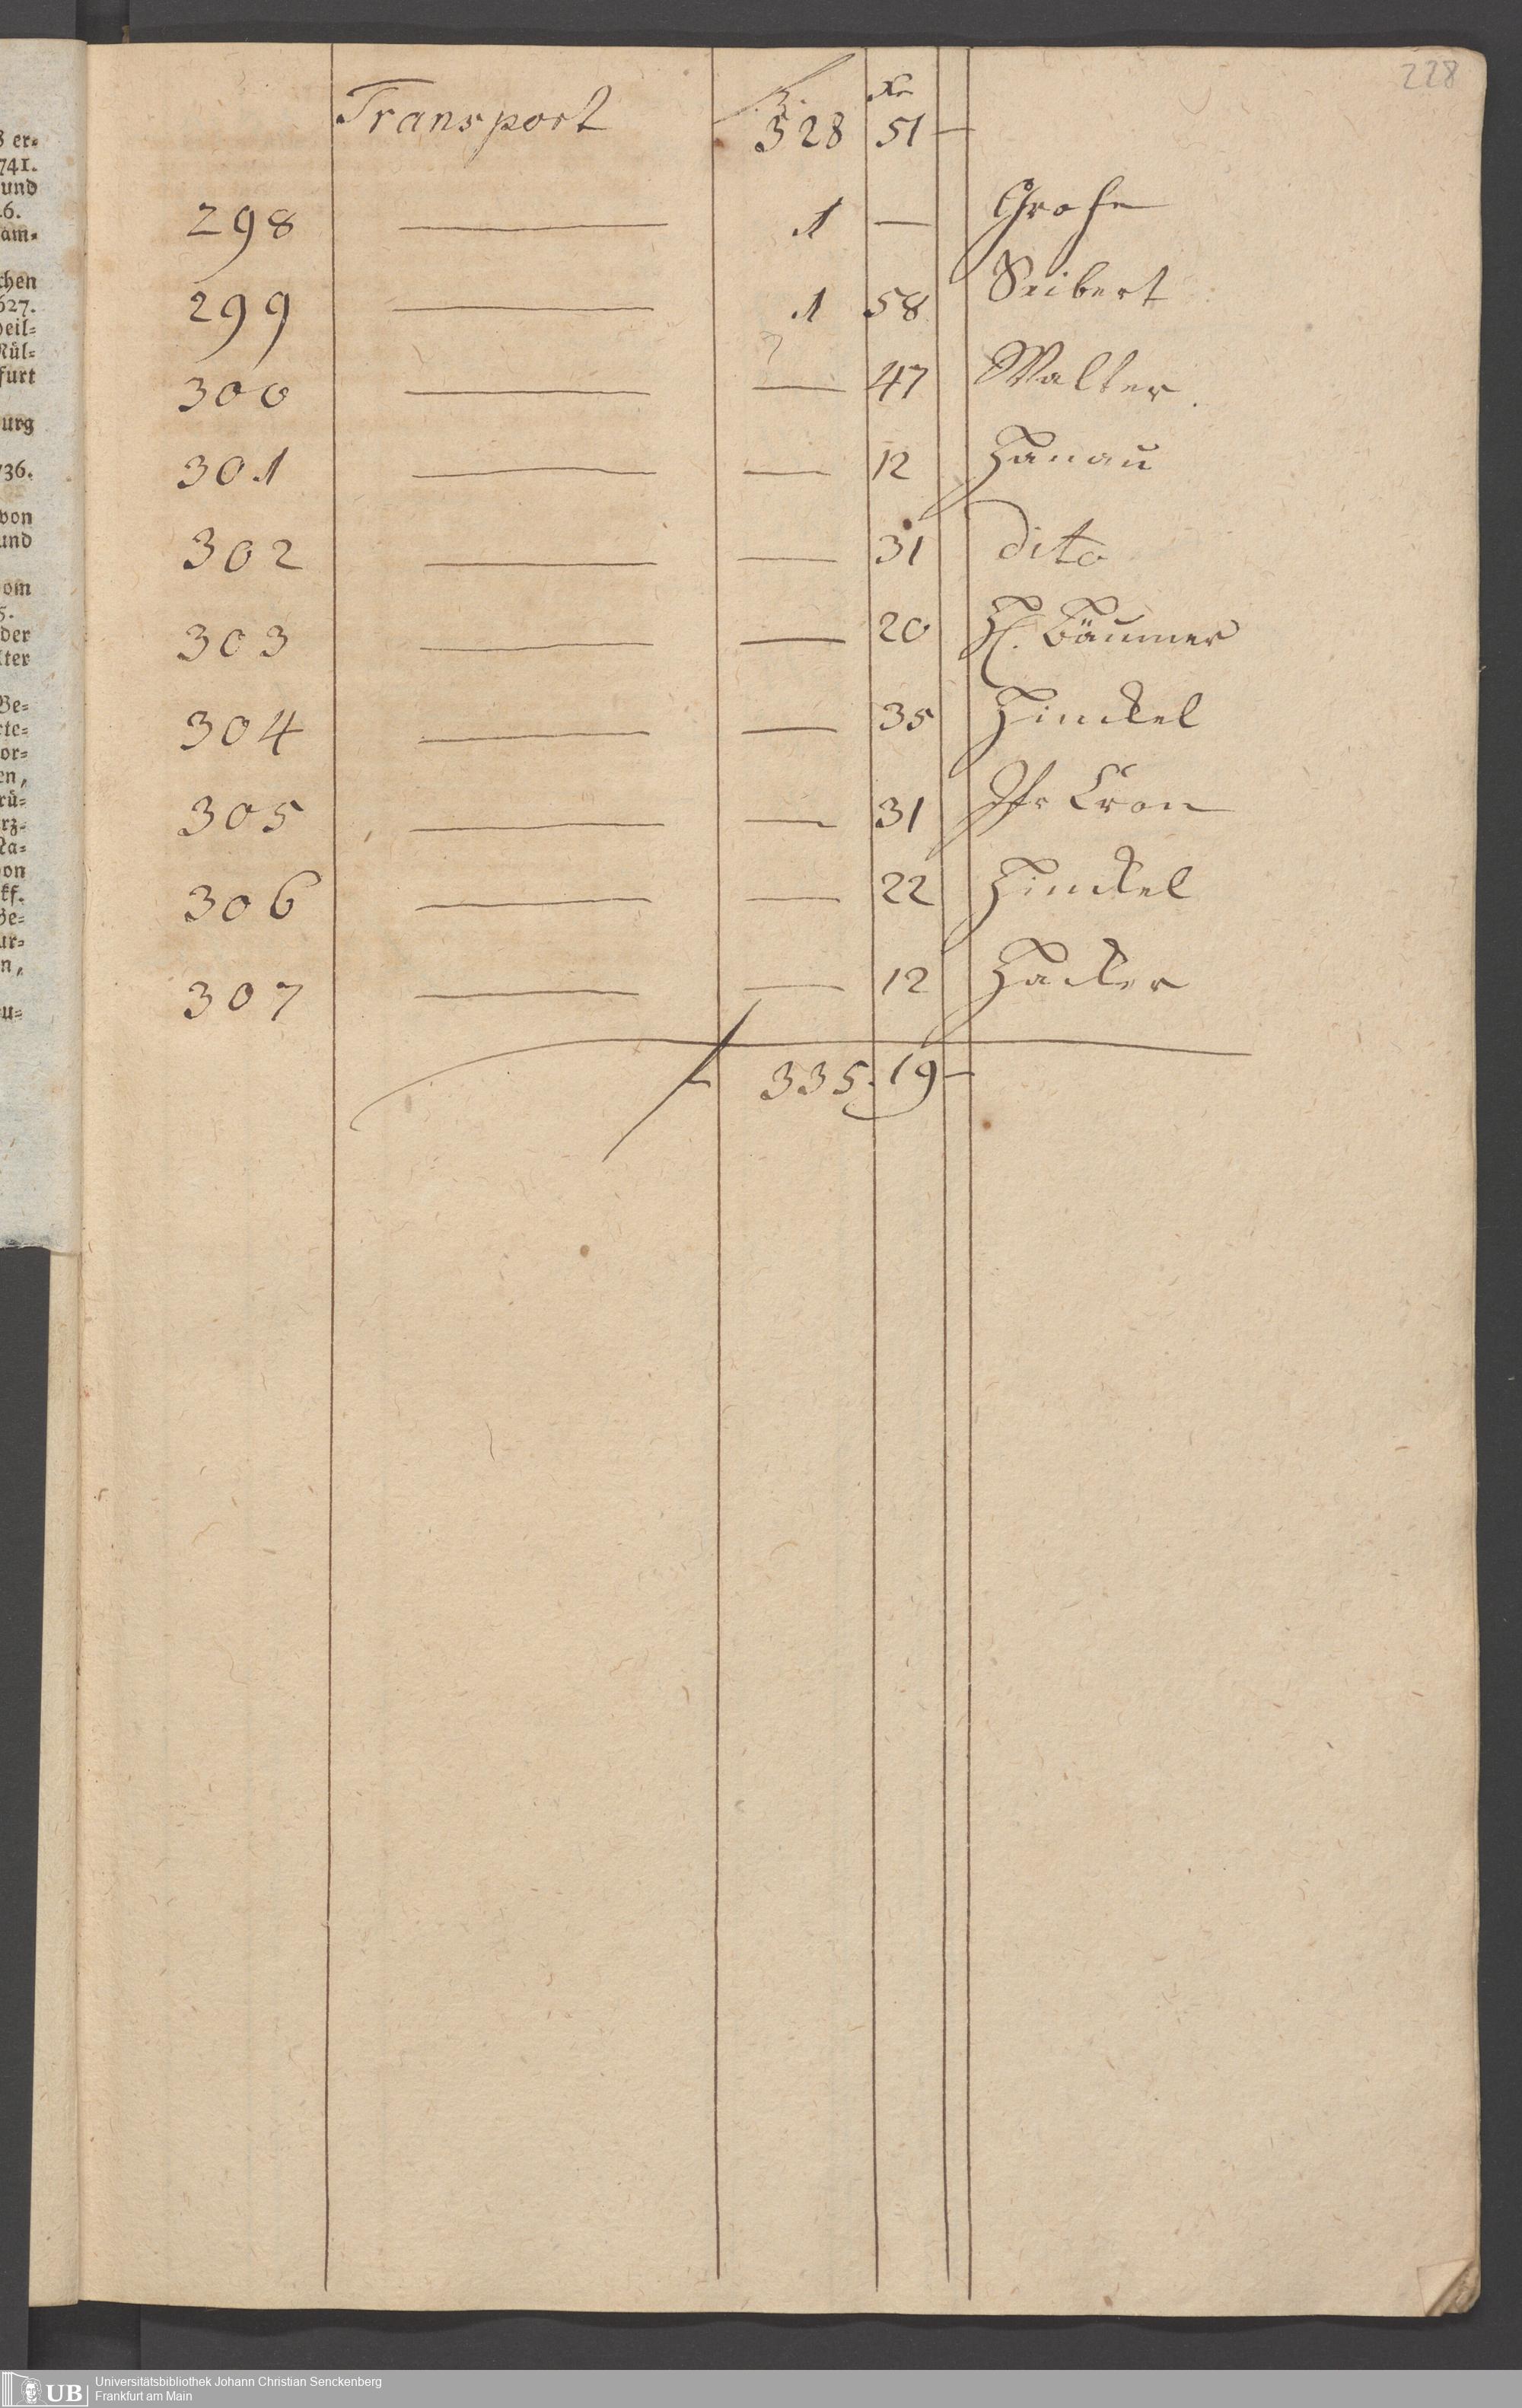 228
Transport f. Xr
328 51 —
298 — 1 — Grohe
299 — 1 58 Seibert
300 — — 47 Walter.
301 — — 12 Hanau
302 — — 31 dito
303 — — 20 H. Bäumer
304 — — 35 Hinckel
305 — — 31 Cron
306 — — 22 Hinckel
307 — — 12 Hacker
f 335. 19 —
8 er=
741.
und
am=
chen
627.
heil=
Mül=
furt
urg
736.
von
und
om
5.
der
lter
Be=
rte=
or=
en,
rü=
rz=
Na=
on
kf.
Ge=
ur=
n,
u=
UB Universitätsbibliothek Johann Christian Senckenberg
Frankfurt am Main